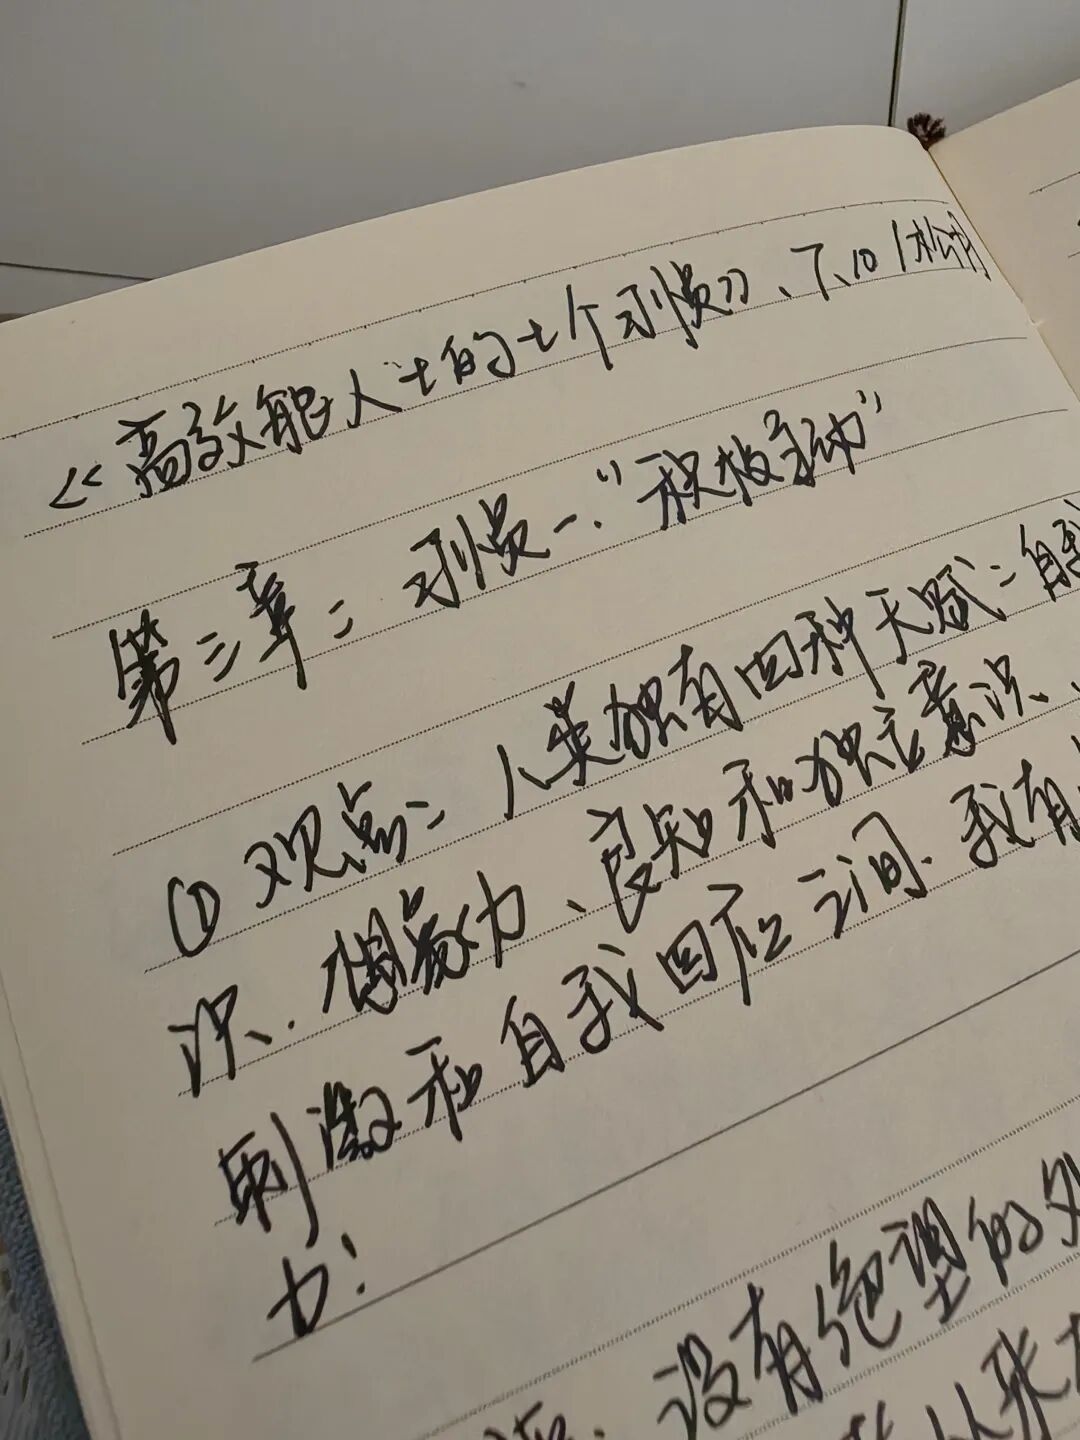 《高效能人士的七个习惯》
第三章：习惯一：“积极主动”
① 观点：人类独有四种天赋：自我
识、想象力、良知和独立意识、
刺激和自我回应之间、我有
力！
没有绝望的